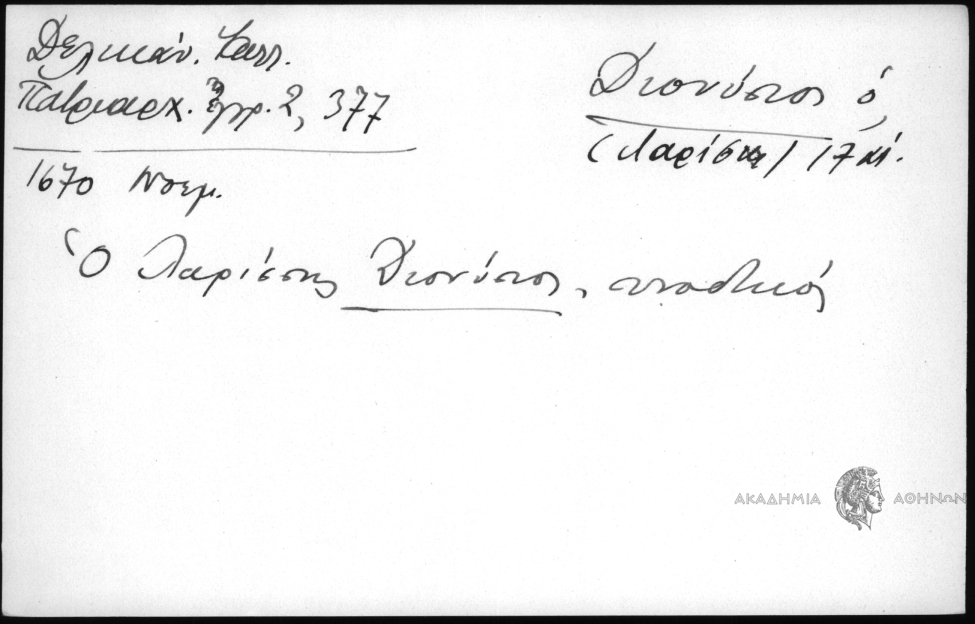 Δελικάν. Καλλ.
Πατριαρχ. Ἔγγρ. 2, 377
1670 Νοεμ.
Διονύσιος ὁ
(Λαρίσης) 17 αἰ.
Ὁ Λαρίσσης Διονύσιος, συνοδικός
ΑΚΑΔΗΜΙΑ ΑΘΗΝΩΝ